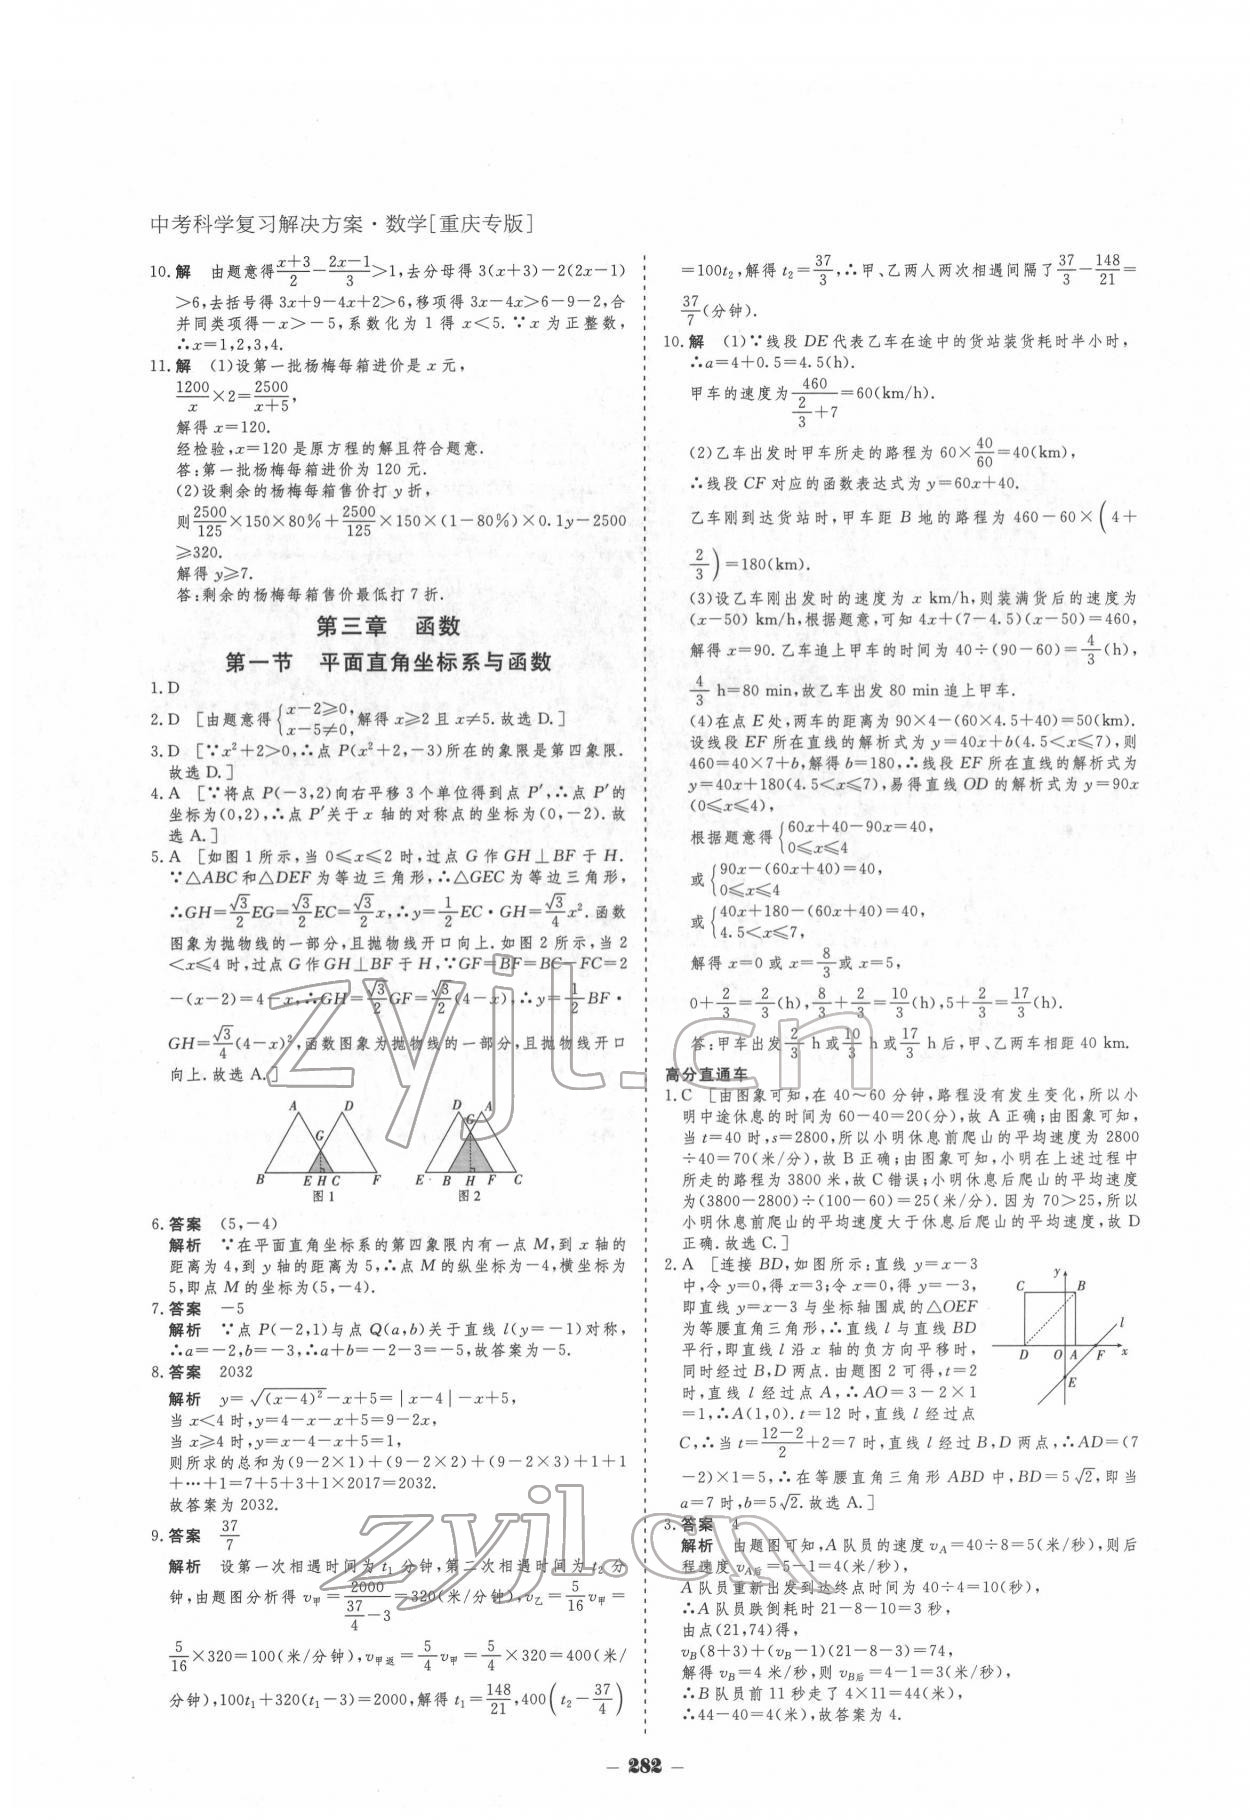 中考科学复习解决方案·数学[重庆专版]
10. 解 由题意得(x+3)/2-(2x-1)/3>1,去分母得 3(x+3)-2(2x-1)
>6,去括号得 3x+9-4x+2>6,移项得 3x-4x>6-9-2,合
并同类项得-x>-5,系数化为 1 得 x<5.∵x 为正整数,
∴x=1,2,3,4.
11. 解 (1)设第一批杨梅每箱进价是 x 元,
1200/x×2=2500/(x+5),
解得 x=120.
经检验,x=120 是原方程的解且符合题意.
答:第一批杨梅每箱进价为 120 元.
(2)设剩余的杨梅每箱售价打 y 折,
则2500/125×150×80%+2500/125×150×(1-80%)×0.1y-2500
≥320.
解得 y≥7.
答:剩余的杨梅每箱售价最低打 7 折.
第三章 函数
第一节 平面直角坐标系与函数
1. D
2. D [由题意得{x-2≥0, x-5≠0, 解得 x≥2 且 x≠5.故选 D.]
3. D [∵x²+2>0,∴点 P(x²+2,-3)所在的象限是第四象限.
故选 D.]
4. A [∵将点 P(-3,2)向右平移 3 个单位得到点 P′,∴点 P′的
坐标为(0,2),∴点 P′关于 x 轴的对称点的坐标为(0,-2).故
选 A.]
5. A [如图 1 所示,当 0≤x≤2 时,过点 G 作 GH⊥BF 于 H.
∵△ABC和△DEF为等边三角形,∴△GEC为等边三角形,
∴GH=√3/2EG=√3/2EC=√3/2x,∴y=1/2EC·GH=√3/4x².函数
图象为抛物线的一部分,且抛物线开口向上.如图 2 所示,当 2
<x≤4 时,过点 G 作 GH⊥BF 于 H,∵GF=BF=BC-FC=2
-(x-2)=4-x,∴GH=√3/2GF=√3/2(4-x),∴y=1/2BF·
GH=√3/4(4-x)²,函数图象为抛物线的一部分,且抛物线开口
向上.故选 A.]
A D G B E H C F
图 1
D A G E B H F C
图 2
6. 答案 (5,-4)
解析 ∵在平面直角坐标系的第四象限内有一点 M,到 x 轴的
距离为 4,到 y 轴的距离为 5,∴点 M 的纵坐标为-4,横坐标为
5,即点 M 的坐标为(5,-4).
7. 答案 -5
解析 ∵点 P(-2,1)与点 Q(a,b)关于直线 l(y=-1)对称,
∴a=-2,b=-3,∴a+b=-2-3=-5,故答案为-5.
8. 答案 2032
解析 y=√(x-4)²-x+5=|x-4|-x+5,
当 x<4 时,y=4-x-x+5=9-2x,
当 x≥4 时,y=x-4-x+5=1,
则所求的总和为(9-2×1)+(9-2×2)+(9-2×3)+1+1
+…+1=7+5+3+1×2017=2032.
故答案为 2032.
9. 答案 37/7
解析 设第一次相遇时间为 t₁ 分钟,第二次相遇时间为 t₂ 分
钟,由题图分析得 v甲=2000/(37/4-3)=320(米/分钟),v乙=5/16v甲=
5/16×320=100(米/分钟),v甲返=5/4v甲=5/4×320=400(米/
分钟),100t₁+320(t₁-3)=2000,解得 t₁=148/21,400(t₂-37/4)
=100t₂,解得 t₂=37/3,∴甲、乙两人两次相遇间隔了37/3-148/21=
37/7(分钟).
10. 解 (1)∵线段 DE 代表乙车在途中的货站装货耗时半小时,
∴a=4+0.5=4.5(h).
甲车的速度为460/(2/3+7)=60(km/h).
(2)乙车出发时甲车所走的路程为 60×40/60=40(km),
∴线段 CF 对应的函数表达式为 y=60x+40.
乙车刚到达货站时,甲车距 B 地的路程为 460-60×(4+
2/3)=180(km).
(3)设乙车刚出发时的速度为 x km/h,则装满货后的速度为
(x-50) km/h,根据题意,可知 4x+(7-4.5)(x-50)=460,
解得 x=90.乙车追上甲车的时间为 40÷(90-60)=4/3(h),
4/3 h=80 min,故乙车出发 80 min 追上甲车.
(4)在点 E 处,两车的距离为 90×4-(60×4.5+40)=50(km).
设线段 EF 所在直线的解析式为 y=40x+b(4.5<x≤7),则
460=40×7+b,解得 b=180,∴线段 EF 所在直线的解析式为
y=40x+180(4.5<x≤7),易得直线 OD 的解析式为 y=90x
(0≤x≤4),
根据题意得{60x+40-90x=40, 0≤x≤4
或{90x-(60x+40)=40, 0≤x≤4
或{40x+180-(60x+40)=40, 4.5<x≤7,
解得 x=0 或 x=8/3或 x=5,
0+2/3=2/3(h),8/3+2/3=10/3(h),5+2/3=17/3(h).
答:甲车出发2/3 h或10/3 h或17/3 h 后,甲、乙两车相距 40 km.
高分直通车
1. C [由图象可知,在 40～60 分钟,路程没有发生变化,所以小
明中途休息的时间为 60-40=20(分),故 A 正确;由图象可知,
当 t=40 时,s=2800,所以小明休息前爬山的平均速度为 2800
÷40=70(米/分),故 B 正确;由图象可知,小明在上述过程中
所走的路程为 3800 米,故 C 错误;小明休息后爬山的平均速度
为(3800-2800)÷(100-60)=25(米/分).因为 70>25,所以
小明休息前爬山的平均速度大于休息后爬山的平均速度,故 D
正确.故选 C.]
2. A [连接 BD,如图所示:直线 y=x-3
中,令 y=0,得 x=3;令 x=0,得 y=-3,
即直线 y=x-3 与坐标轴围成的△OEF
为等腰直角三角形,∴直线 l 与直线 BD
平行,即直线 l 沿 x 轴的负方向平移时,
同时经过 B,D 两点.由题图 2 可得,t=2
时,直线 l 经过点 A,∴AO=3-2×1
=1,∴A(1,0).t=12 时,直线 l 经过点
C,∴当 t=(12-2)/2+2=7 时,直线 l 经过 B,D 两点,∴AD=(7
-2)×1=5,∴在等腰直角三角形 ABD 中,BD=5√2,即当
a=7 时,b=5√2.故选 A.]
y C B l D O A F x E
3. 答案 4
解析 由题图可知,A 队员的速度 vA=40÷8=5(米/秒),则后
程速度 vA后=5-1=4(米/秒),
A 队员重新出发到达终点时间为 40÷4=10(秒),
∴A 队员跌倒耗时 21-8-10=3 秒,
由点(21,74)得,
vB(8+3)+(vB-1)(21-8-3)=74,
解得 vB=4 米/秒,则 vB后=4-1=3(米/秒),
∴B 队员前 11 秒走了 4×11=44(米),
∴44-40=4(米),故答案为 4.
zyjl.cn
zyjl.cn
- 282 -